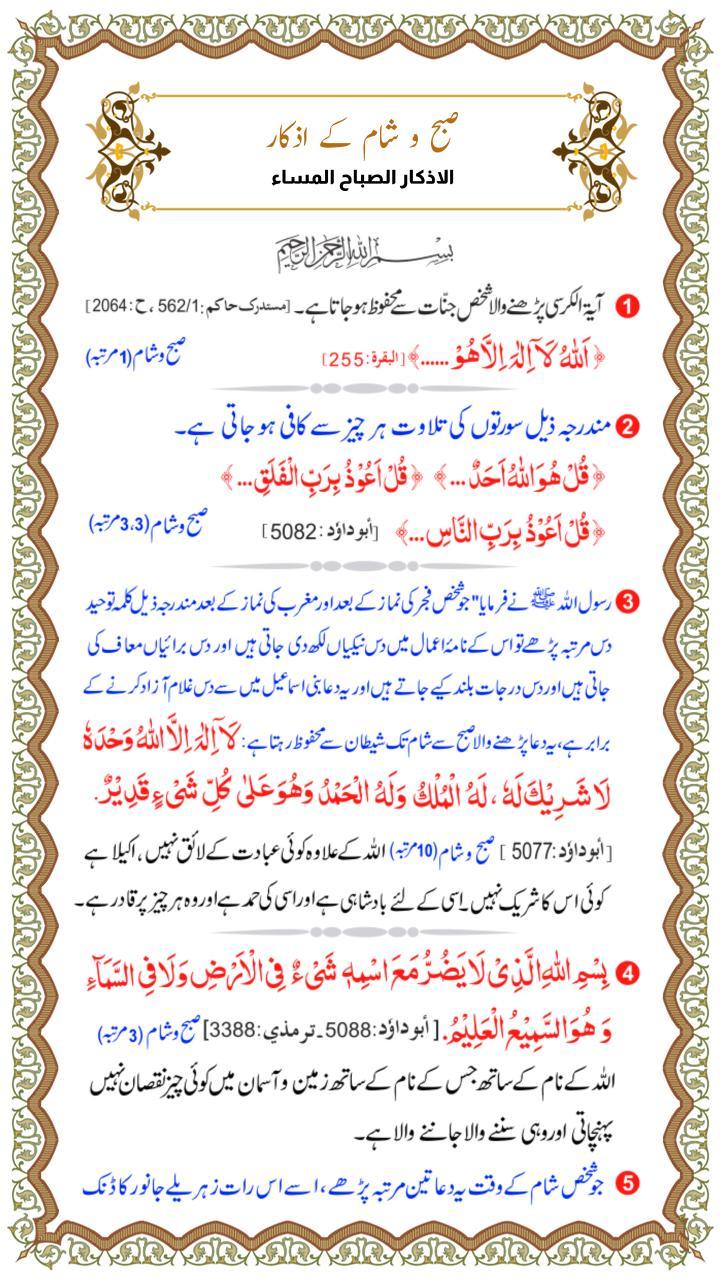 صبح و شام کے اذکار
الاذكار الصباح المساء
بسم الله الرحمن الرحيم
1 آیۃ الکرسی پڑھنے والا شخص جنّات سے محفوظ ہو جاتا ہے۔ [مستدرک حاکم: 562/1، ح: 2064]
﴿اَللّٰهُ لَآ اِلٰهَ اِلَّا هُوَ ......﴾ [البقرة: 255] صبح و شام (1 مرتبہ)
2 مندرجہ ذیل سورتوں کی تلاوت ہر چیز سے کافی ہو جاتی ہے۔
﴿قُلْ هُوَ اللّٰهُ اَحَدٌ...﴾ ﴿قُلْ اَعُوْذُ بِرَبِّ الْفَلَقِ...﴾
﴿قُلْ اَعُوْذُ بِرَبِّ النَّاسِ...﴾ [أبو داؤد: 5082] صبح و شام (3،3 مرتبہ)
3 رسول اللہ ﷺ نے فرمایا" جو شخص فجر کی نماز کے بعد اور مغرب کی نماز کے بعد مندرجہ ذیل کلمہ توحید
دس مرتبہ پڑھے تو اس کے نامۂ اعمال میں دس نیکیاں لکھ دی جاتی ہیں اور دس برائیاں معاف کی
جاتی ہیں اور دس درجات بلند کیے جاتے ہیں اور یہ دعا بنی اسماعیل میں سے دس غلام آزاد کرنے کے
برابر ہے، یہ دعا پڑھنے والا صبح سے شام تک شیطان سے محفوظ رہتا ہے: لَآ اِلٰهَ اِلَّا اللّٰهُ وَحْدَهٗ
لَا شَرِيْكَ لَهٗ، لَهُ الْمُلْكُ وَلَهُ الْحَمْدُ وَهُوَ عَلٰى كُلِّ شَىْءٍ قَدِيْرٌ.
[أبو داؤد: 5077] صبح و شام (10 مرتبہ) اللہ کے علاوہ کوئی عبادت کے لائق نہیں، اکیلا ہے
کوئی اس کا شریک نہیں۔ اسی کے لئے بادشاہی ہے اور اسی کی حمد ہے اور وہ ہر چیز پر قادر ہے۔
4 بِسْمِ اللّٰهِ الَّذِىْ لَا يَضُرُّ مَعَ اسْمِهٖ شَىْءٌ فِى الْاَرْضِ وَلَا فِى السَّمَآءِ
وَ هُوَ السَّمِيْعُ الْعَلِيْمُ. [أبو داؤد: 5088۔ ترمذي: 3388] صبح و شام (3 مرتبہ)
اللہ کے نام کے ساتھ جس کے نام کے ساتھ زمین و آسمان میں کوئی چیز نقصان نہیں
پہنچاتی اور وہی سننے والا جاننے والا ہے۔
5 جو شخص شام کے وقت یہ دعا تین مرتبہ پڑھے، اسے اس رات زہریلے جانور کا ڈنک